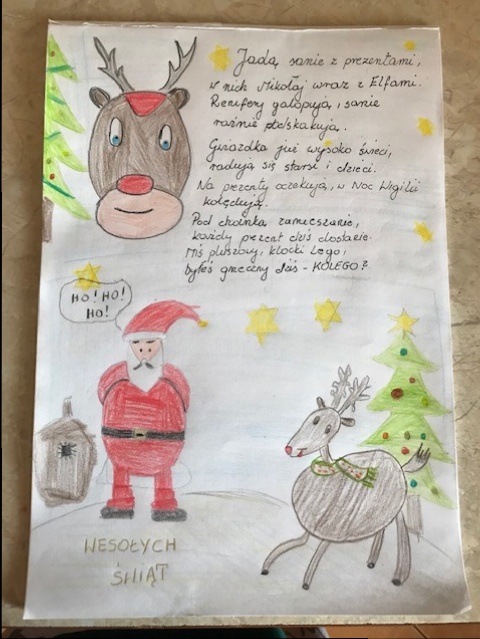 Jadą sanie z prezentami,
w nich Mikołaj wraz z Elfami.
Renifery galopują, sanie
raźnie podskakują.
Gwiazdka już wysoko świeci,
radują się starsi i dzieci.
Na prezenty oczekują, w Noc Wigilii
kolędują.
Pod choinką zamieszanie,
każdy prezent dziś dostanie.
Miś pluszowy, klocki Lego,
byłeś grzeczny dziś - KOLEGO?
HO! HO!
HO!
WESOŁYCH
ŚWIĄT